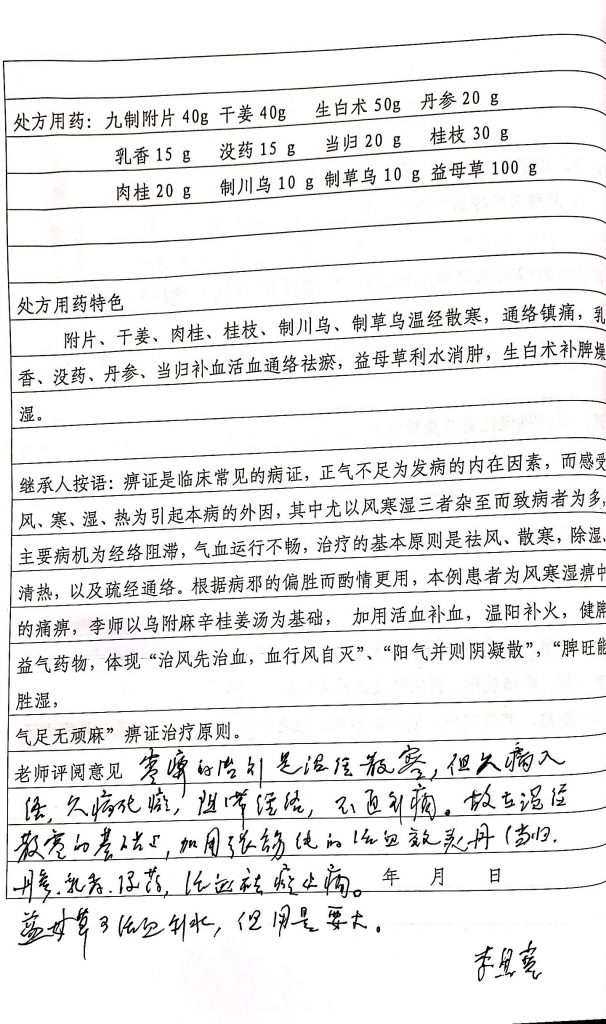 处方用药：九制附片 40g 干姜 40g 生白术 50g 丹参 20 g
乳香 15 g 没药 15 g 当归 20 g 桂枝 30 g
肉桂 20 g 制川乌 10 g 制草乌 10 g 益母草 100 g
处方用药特色
附片、干姜、肉桂、桂枝、制川乌、制草乌温经散寒，通络镇痛，乳
香、没药、丹参、当归补血活血通络祛瘀，益母草利水消肿，生白术补脾燥
湿。
继承人按语：痹证是临床常见的病证，正气不足为发病的内在因素，而感受
风、寒、湿、热为引起本病的外因，其中尤以风寒湿三者杂至而致病者为多，
主要病机为经络阻滞，气血运行不畅，治疗的基本原则是祛风、散寒，除湿、
清热，以及疏经通络。根据病邪的偏胜而酌情更用，本例患者为风寒湿痹中
的痛痹，李师以乌附麻辛桂姜汤为基础， 加用活血补血，温阳补火，健脾
益气药物，体现“治风先治血，血行风自灭”、“阳气并则阴凝散”，“脾旺能
胜湿，
气足无顽麻”痹证治疗原则。
老师评阅意见 寒痹的治则是温经散寒，但久病入
络，久病死瘀，阻滞经络，不通则痛。故在温经
散寒的基础上，加用张锡纯的活血效灵丹（当归.
丹参.乳香.没药，活血祛瘀止痛。 年 月 日
益母草可活血利水，但用量要大。